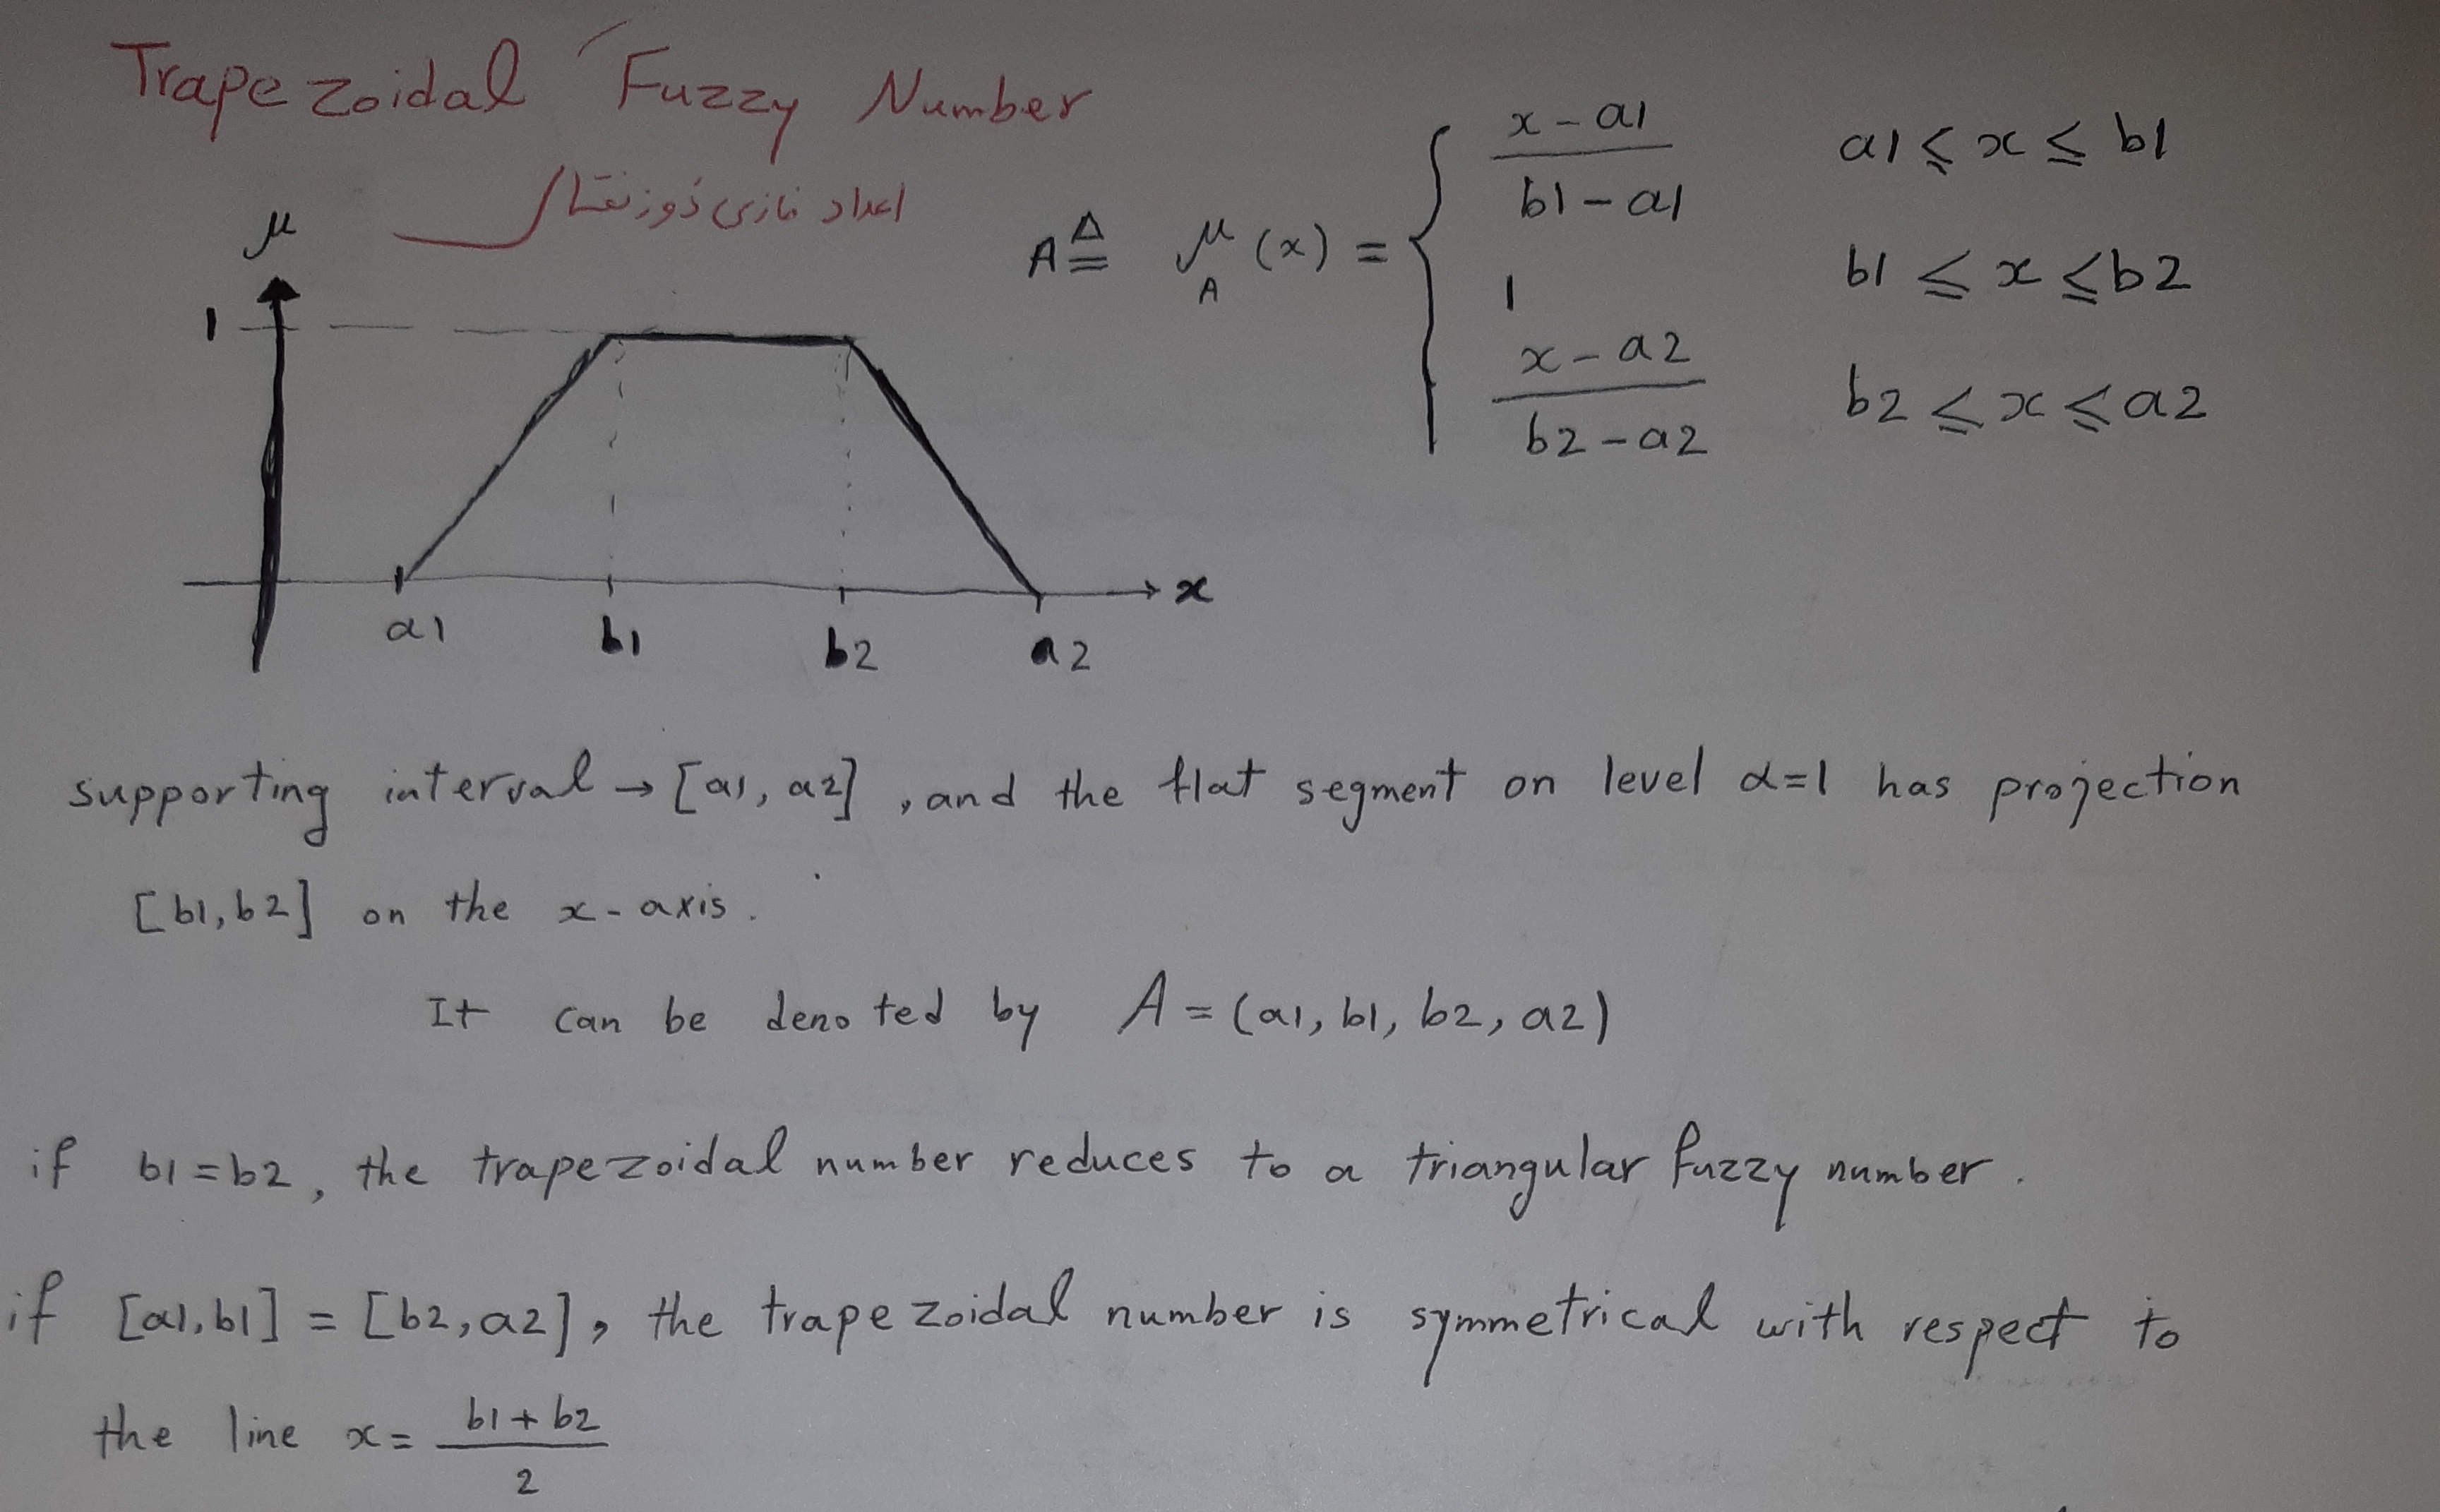 Trapezoidal Fuzzy Number
اعداد فازی ذوزنقه‌ای
A ≜ μ_A (x) = { (x - a1)/(b1 - a1)    a1 ≤ x ≤ b1
1    b1 ≤ x ≤ b2
(x - a2)/(b2 - a2)    b2 ≤ x ≤ a2
μ
1
a1 b1 b2 a2 x
supporting interval → [a1, a2] , and the flat segment on level α=1 has projection
[b1, b2] on the x-axis.
It can be denoted by A = (a1, b1, b2, a2)
if b1 = b2, the trapezoidal number reduces to a triangular fuzzy number.
if [a1, b1] = [b2, a2], the trapezoidal number is symmetrical with respect to
the line x = (b1 + b2)/2